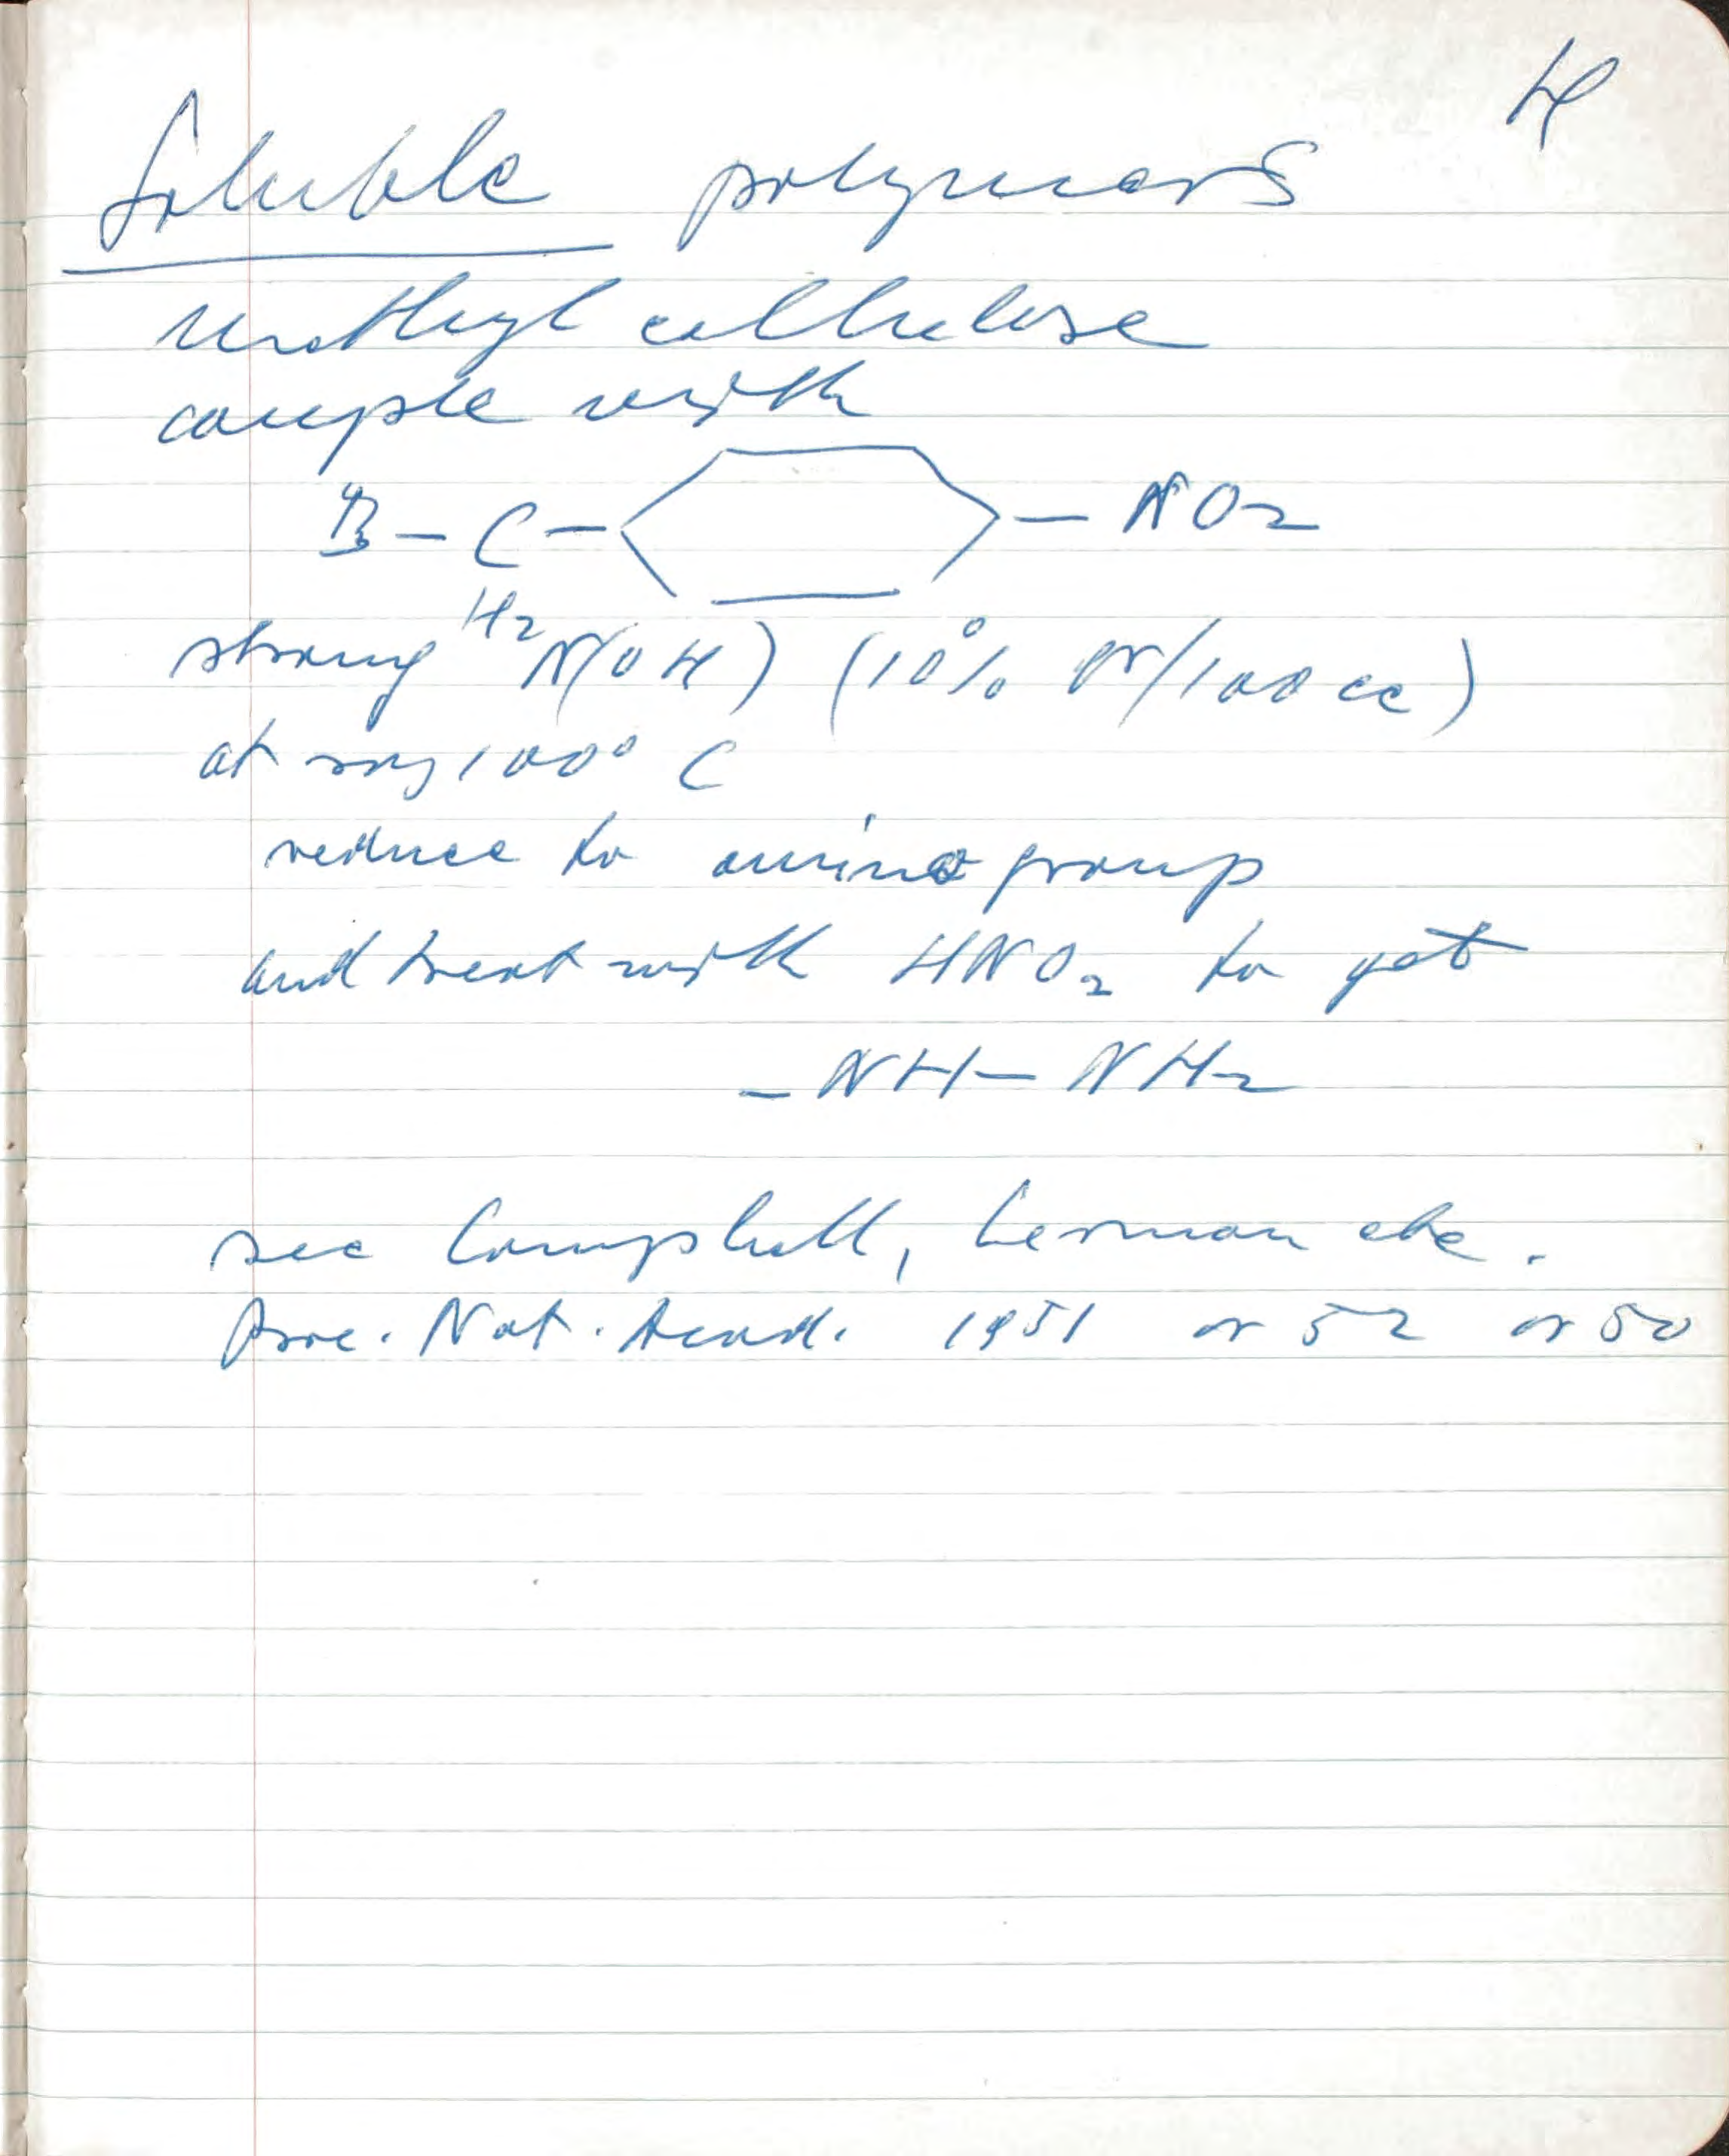 4
Soluble polymers
methyl cellulose
couple with
B - C - - NO2
H2
strong N(OH) (10% gr/100 cc)
at say 100° C
reduce to amino group
and treat with HNO2 to get
- NH - NH2
see Campbell, Lerman etc.
Proc. Nat. Acad. 1951 or 52 or 50